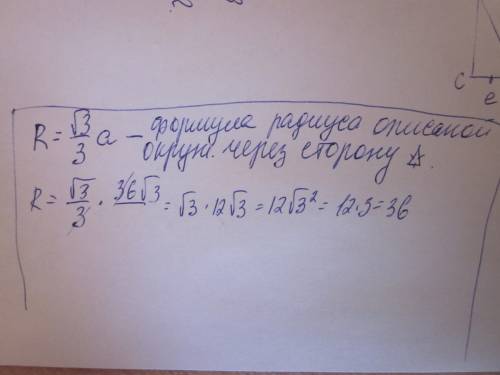 C
e
R = √3/3 a — формула радиуса описаной
окруж. через сторону △.
R = √3/3 · 36√3 = √3 · 12√3 = 12√3² = 12·3 = 36